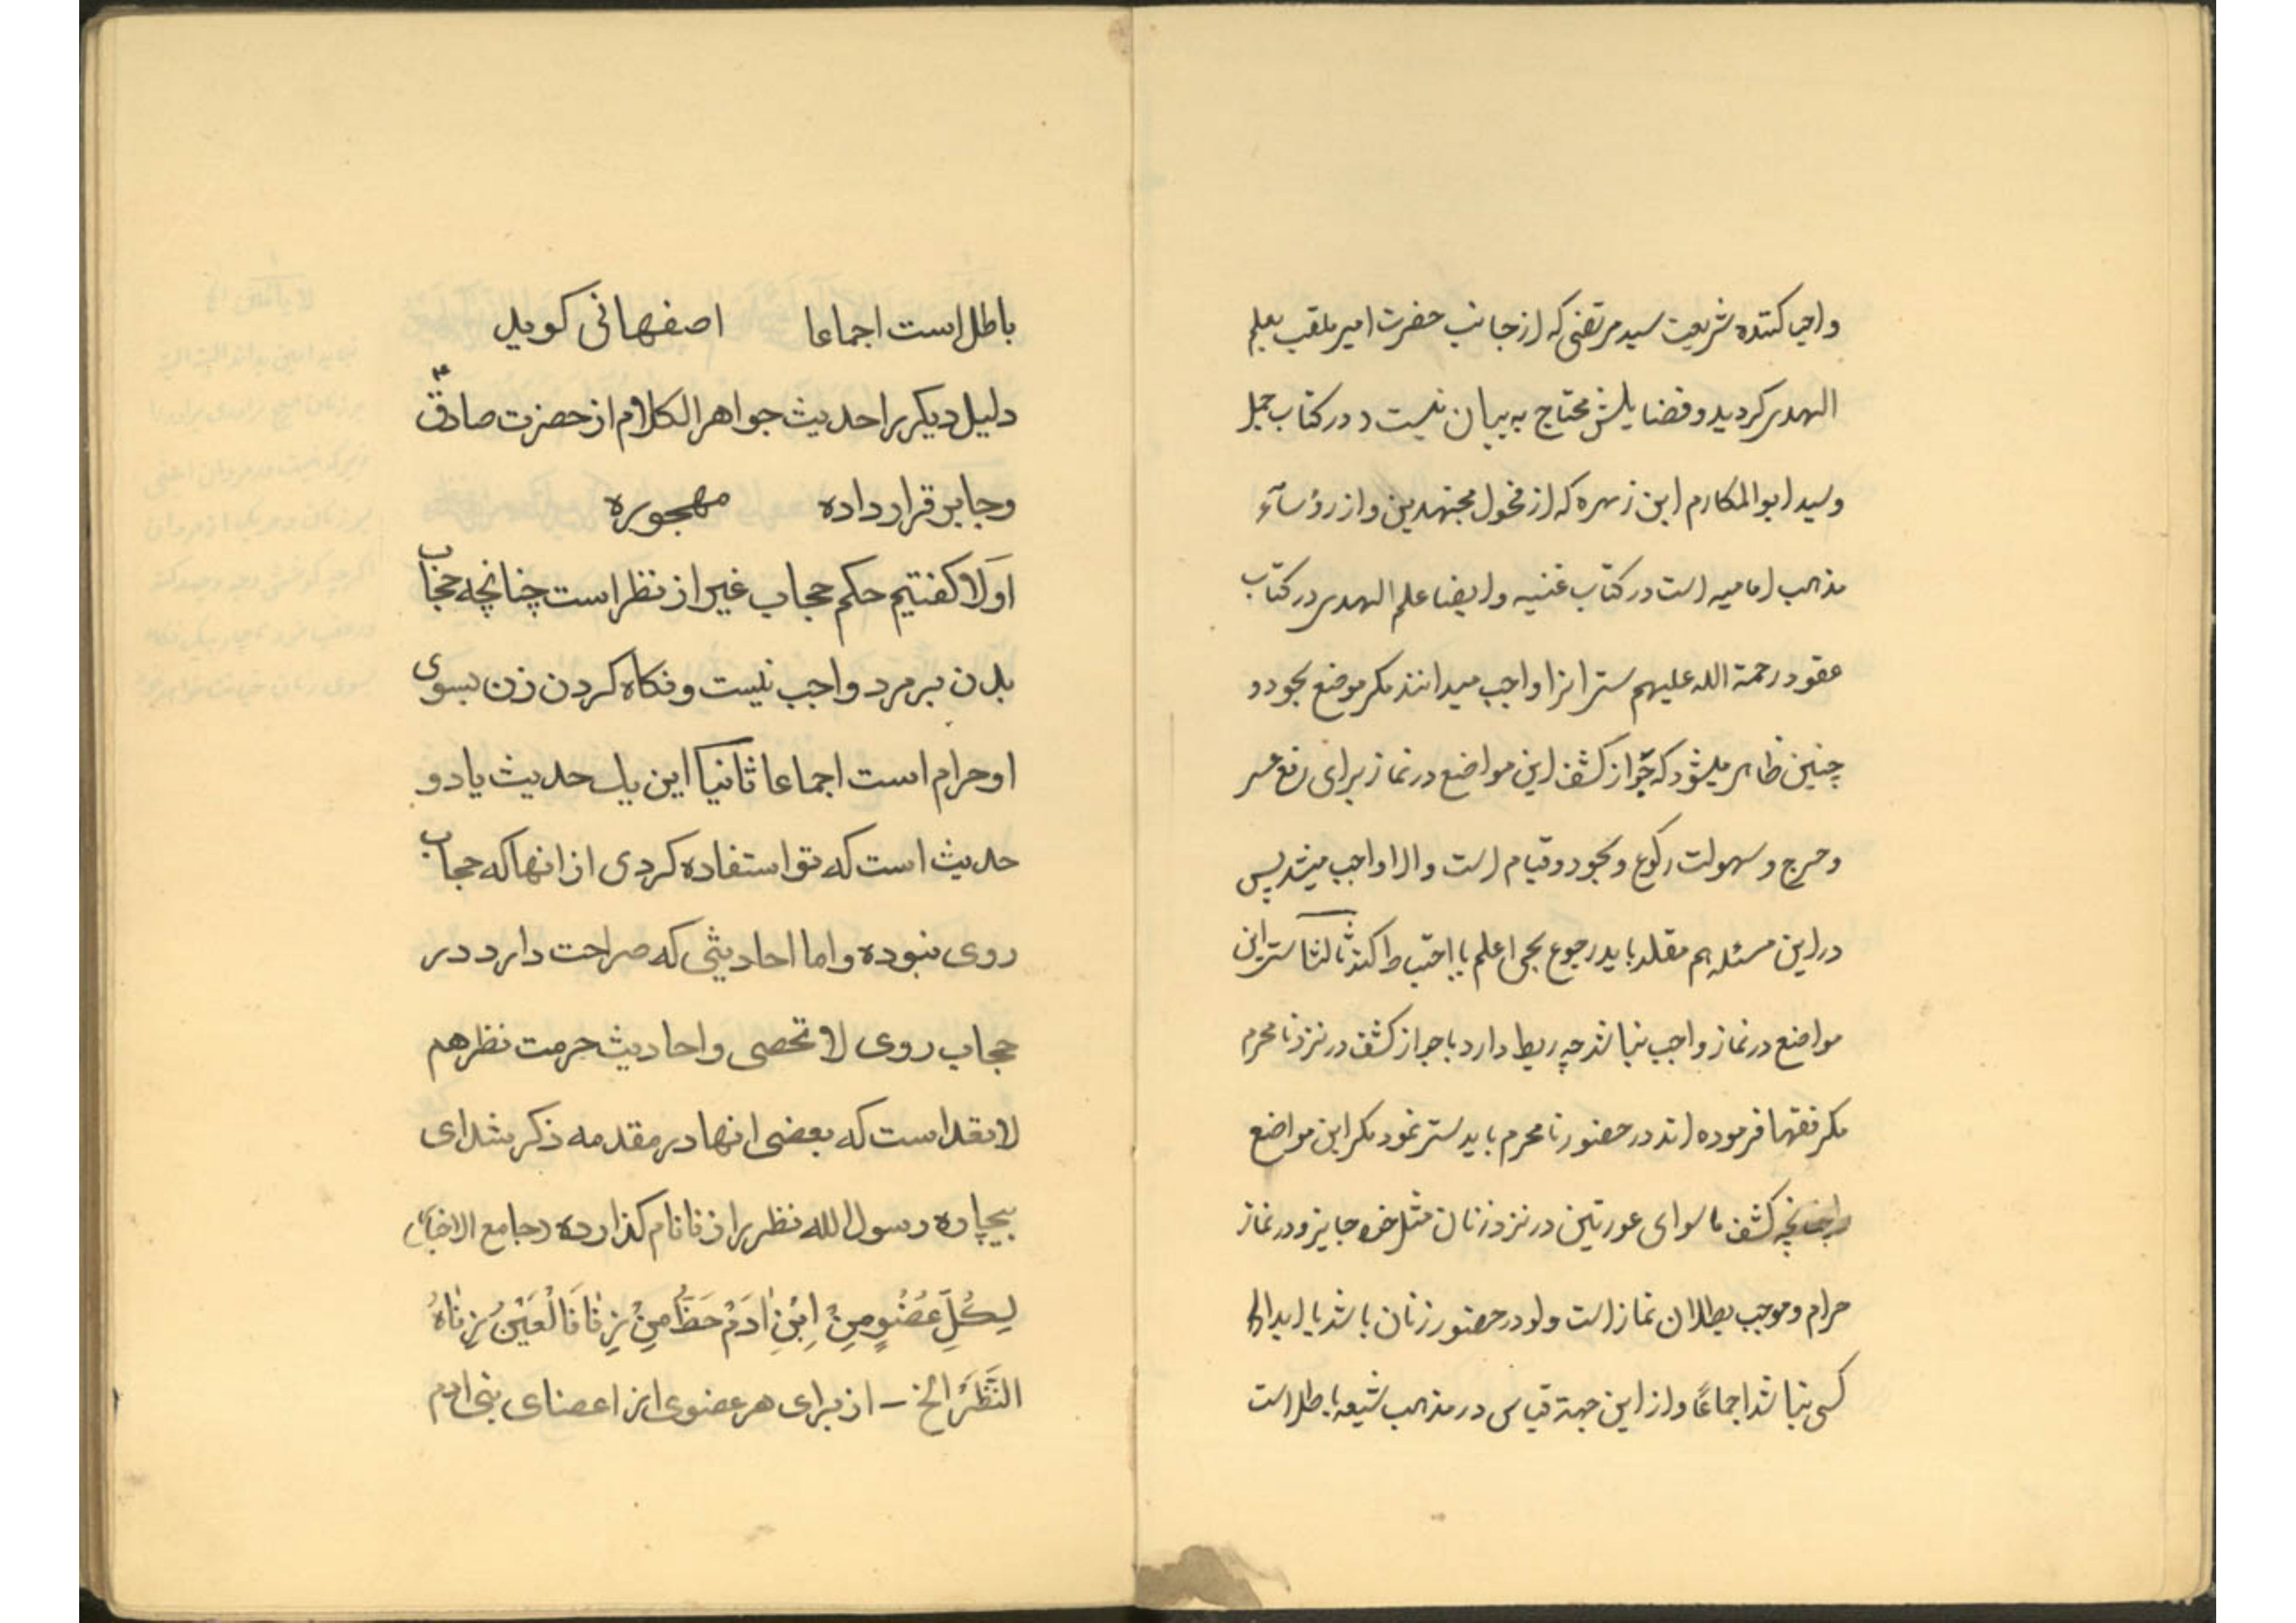 واحیا کننده شریعت سید مرتضی که از جانب حضرت امیر ملقب بعلم
الهدی کردید و فضایلش محتاج به بیان نیست د در کتاب جمل
وسید ابوالمکارم ابن زهره که از فحول مجتهدین و از رؤسآء
مذهب امامیه است در کتاب غنیه و ایضا علم الهدی در کتاب
عقود رحمة الله علیهم ستر انرا واجب میدانند مکر موضع سجود و
چنین ظاهر میشود که جواز کشف این مواضع در نماز برای رفع عسر
وحرج و سهولت رکوع و سجود و قیام است والا واجب میشد پس
در این مسئله هم مقلد باید رجوع بحی اعلم یا احتیاط کند ثالثا ستر این
مواضع در نماز واجب نباشد چه ربط دارد با جواز کشف در نزد نامحرم
مکر فقها فرموده اند در حضور نامحرم باید ستر نمود مکر این مواضع
چنانچه کشف ما سوای عورتین در نزد زنان مثل خود جایز و در نماز
حرام و موجب بطلان نماز است ولو در حضور زنان باشد یا ابدا
کسی نباشد اجماعًا و از این جهة قیاس در مذهب شیعه باطل است
باطل است اجماعا اصفهانی کوید
دلیل دیکر را حدیث جواهر الکلام از حضرت صادق ع
وجابر قرار داده مهجوره
اولا کفتیم حکم حجاب غیر از نظر است چنانچه حجاب
بدن بر مرد واجب نیست و نکاه کردن زن بسوی
او حرام است اجماعا ثانیا این یک حدیث یا دو
حدیث است که تو استفاده کردی از انها که حجاب
روی نبوده و اما احادیثی که صراحت دارد در
حجاب روی لا تحصی و احادیث حرمت نظر هم
لا تعد است که بعضی انها در مقدمه ذکر شد ای
بیچاره رسول الله نظر را زنا نام کذارده (جامع الاخبار)
لِکُلِّ عُضْوٍ مِنْ اِبْنِ اٰدَمَ حَظٌّ مِنْ زِنٰا فَالْعَیْنُ زِنٰاهُ
النَّظَرُ الخ – از برای هر عضوی از اعضای بنی ادم